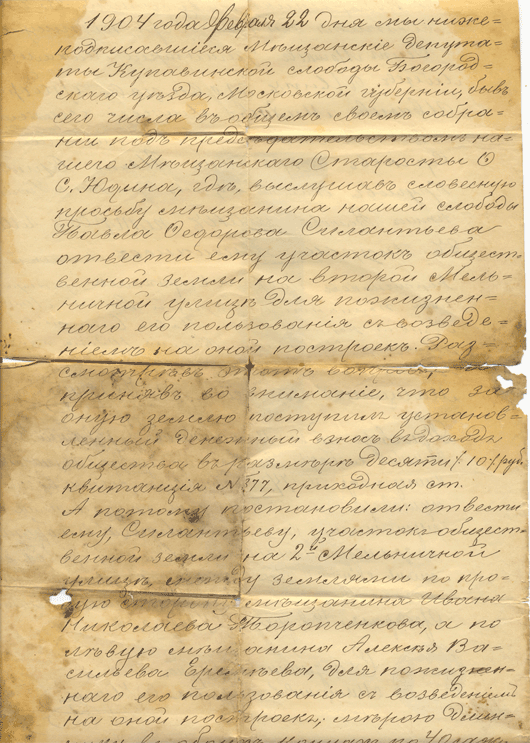 1904 года Февраля 22 дня мы ниже=
подписавшіеся Мѣщанскіе Депута=
ты Купавинской слободы Богород=
скаго уѣзда, Московской губерніи, бывъ
сего числа въ общемъ своемъ собра=
ніи подъ предсѣдательствомъ на=
шего Мѣщанскаго Старосты
С. Юдина, гдѣ, выслушавъ словесную
просьбу мѣщанина нашей слободы
Павла Ѳедорова Силантьева
отвести ему участокъ общест=
венной земли на второй Мель=
ничной улицѣ для пожизнен=
наго его пользованія съ возведе=
ніемъ на оной построекъ. Раз=
смотрѣвъ этотъ вопросъ,
принявъ во вниманіе, что за
оную землю поступилъ установ=
ленный денежный взносъ въ доходъ
общества въ размѣрѣ десяти /10/ руб.
квитанція № 377, приходная ст.
А потому постановили: отвести
ему, Силантьеву, участокъ общест=
венной земли на 2й Мельничной
улицѣ, между землями по пра=
вую сторону мѣщанина Ивана
Николаева а по
лѣвую мѣщанина Алексѣя Ва=
сильева для пожизнен=
наго его пользованія съ возведеніемъ
на оной построекъ, мѣрою длин=